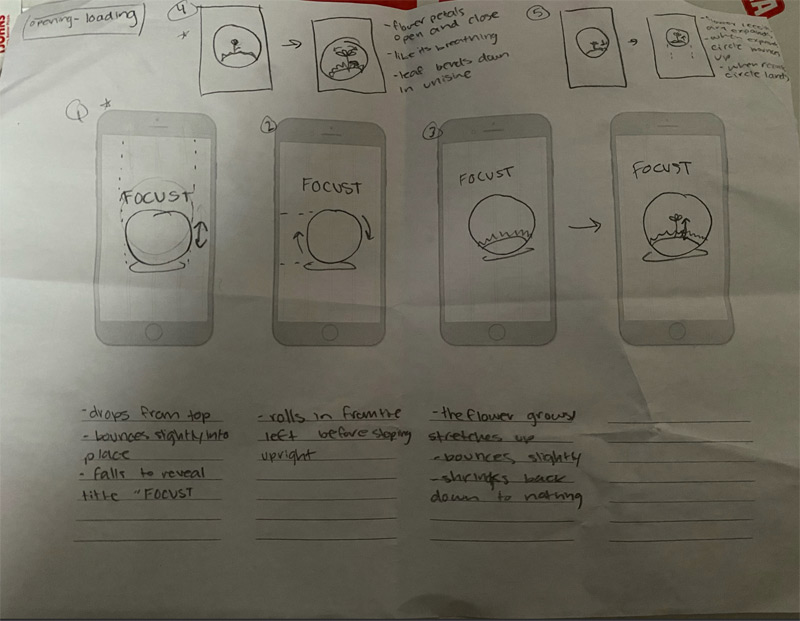 (opening-loading)
4
*
- flower petals
open and close
- like its breathing
- leaf bends down
in unisine
5
out expands
- when expands
circle
up
circle lands
1 *
FOCUST
2
FOCUST
3
FOCUST
FOCUST
- drops from top
- bounces slightly into
place
- falls to reveal
title "FOCUST
- rolls in from the
left before stoping
upright
- the flower grows
stretches up
- bounces slightly
- shrinks back
down to nothing